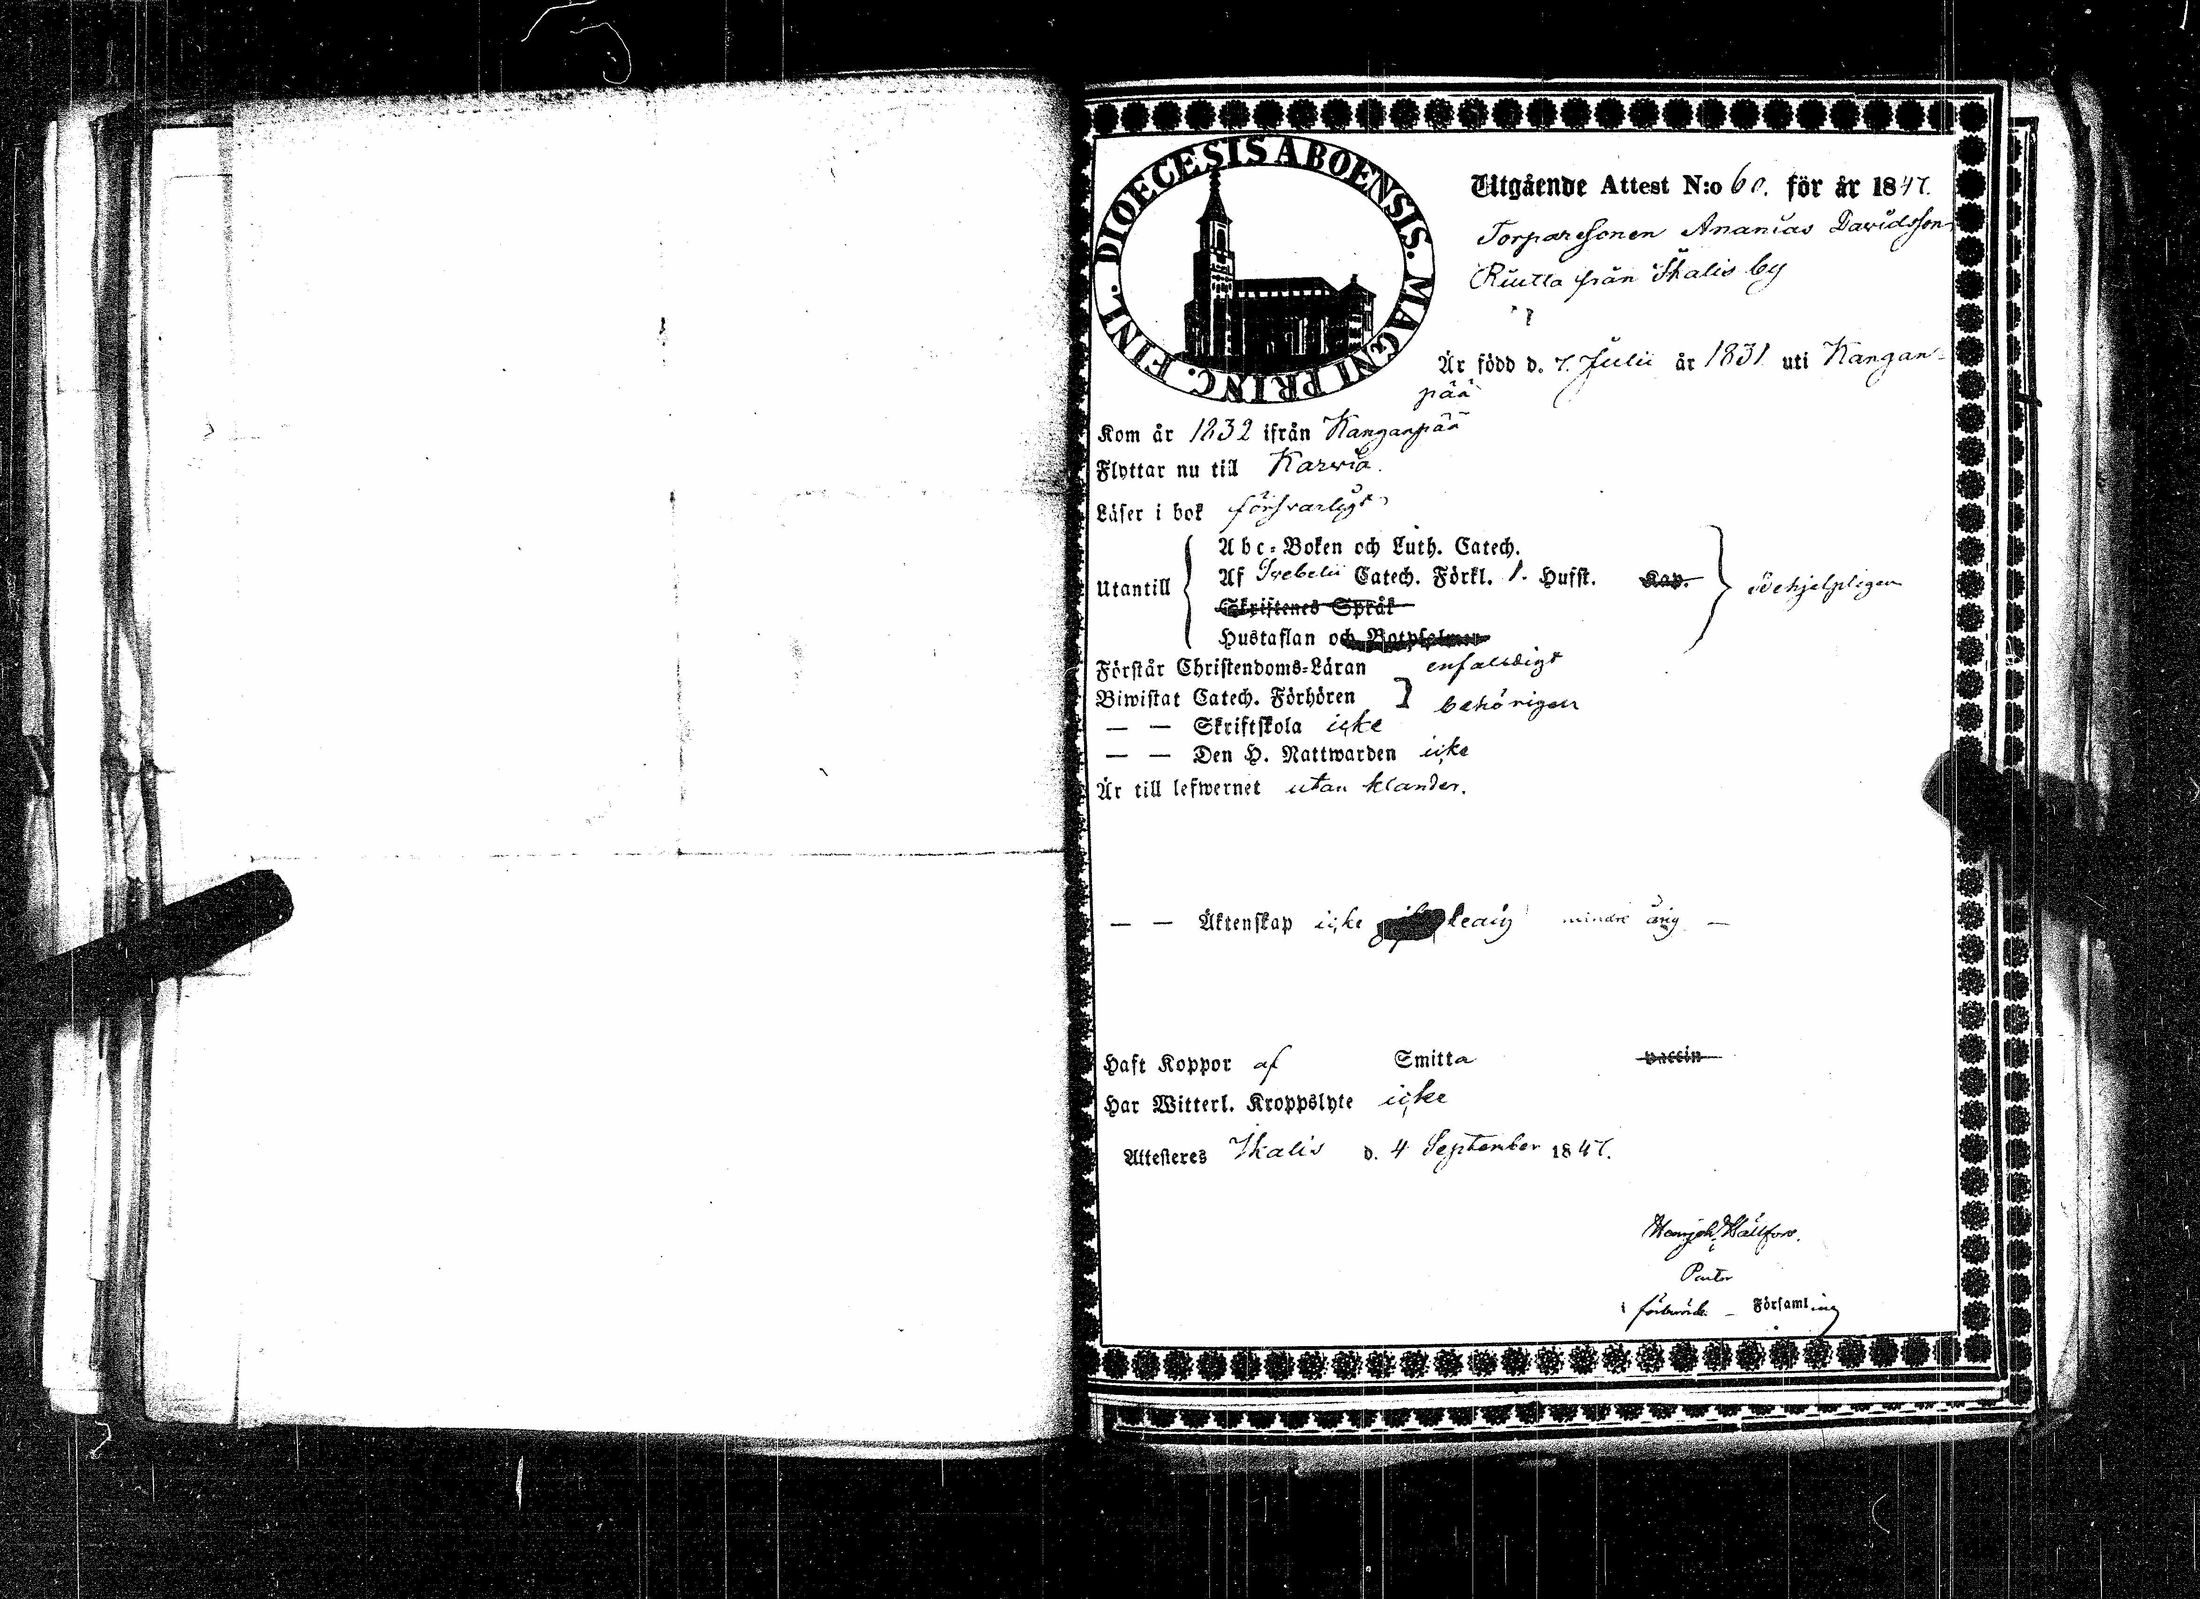 DIOECESIS ABOENSIS. MAGNI PRINC. FINL.
Utgående Attest N:o 60. för år 1847.
Torparesonen Ananias Davidsson
Riutta från Ikalis by
Är född d. 7. Julii år 1831 uti Kangan-
pää
Kom år 1832 ifrån Kanganpää
Flyttar nu till Karvia.
Läser i bok försvarligt
Abc-Boken och Luth. Catech.
Utantill Af Svebelii Catech. Förkl. 1. Hufst. Kap.
Skriftenes Språk
Hustaflan och Botpsalmen
Förstår Christendoms-Läran enfaldigt
Biwistat Catech. Förhören behörigen
— — Skriftskola icke
— — Den H. Nattwarden icke
Är till lefwernet utan klander.
— — Äktenskap icke ledig mindre årig —
Haft Koppor af Smitta vaccin
Har Witterl. Kroppslyte icke
Attesteres Ikalis d. 4 September 1847.
Pastor
i Församling